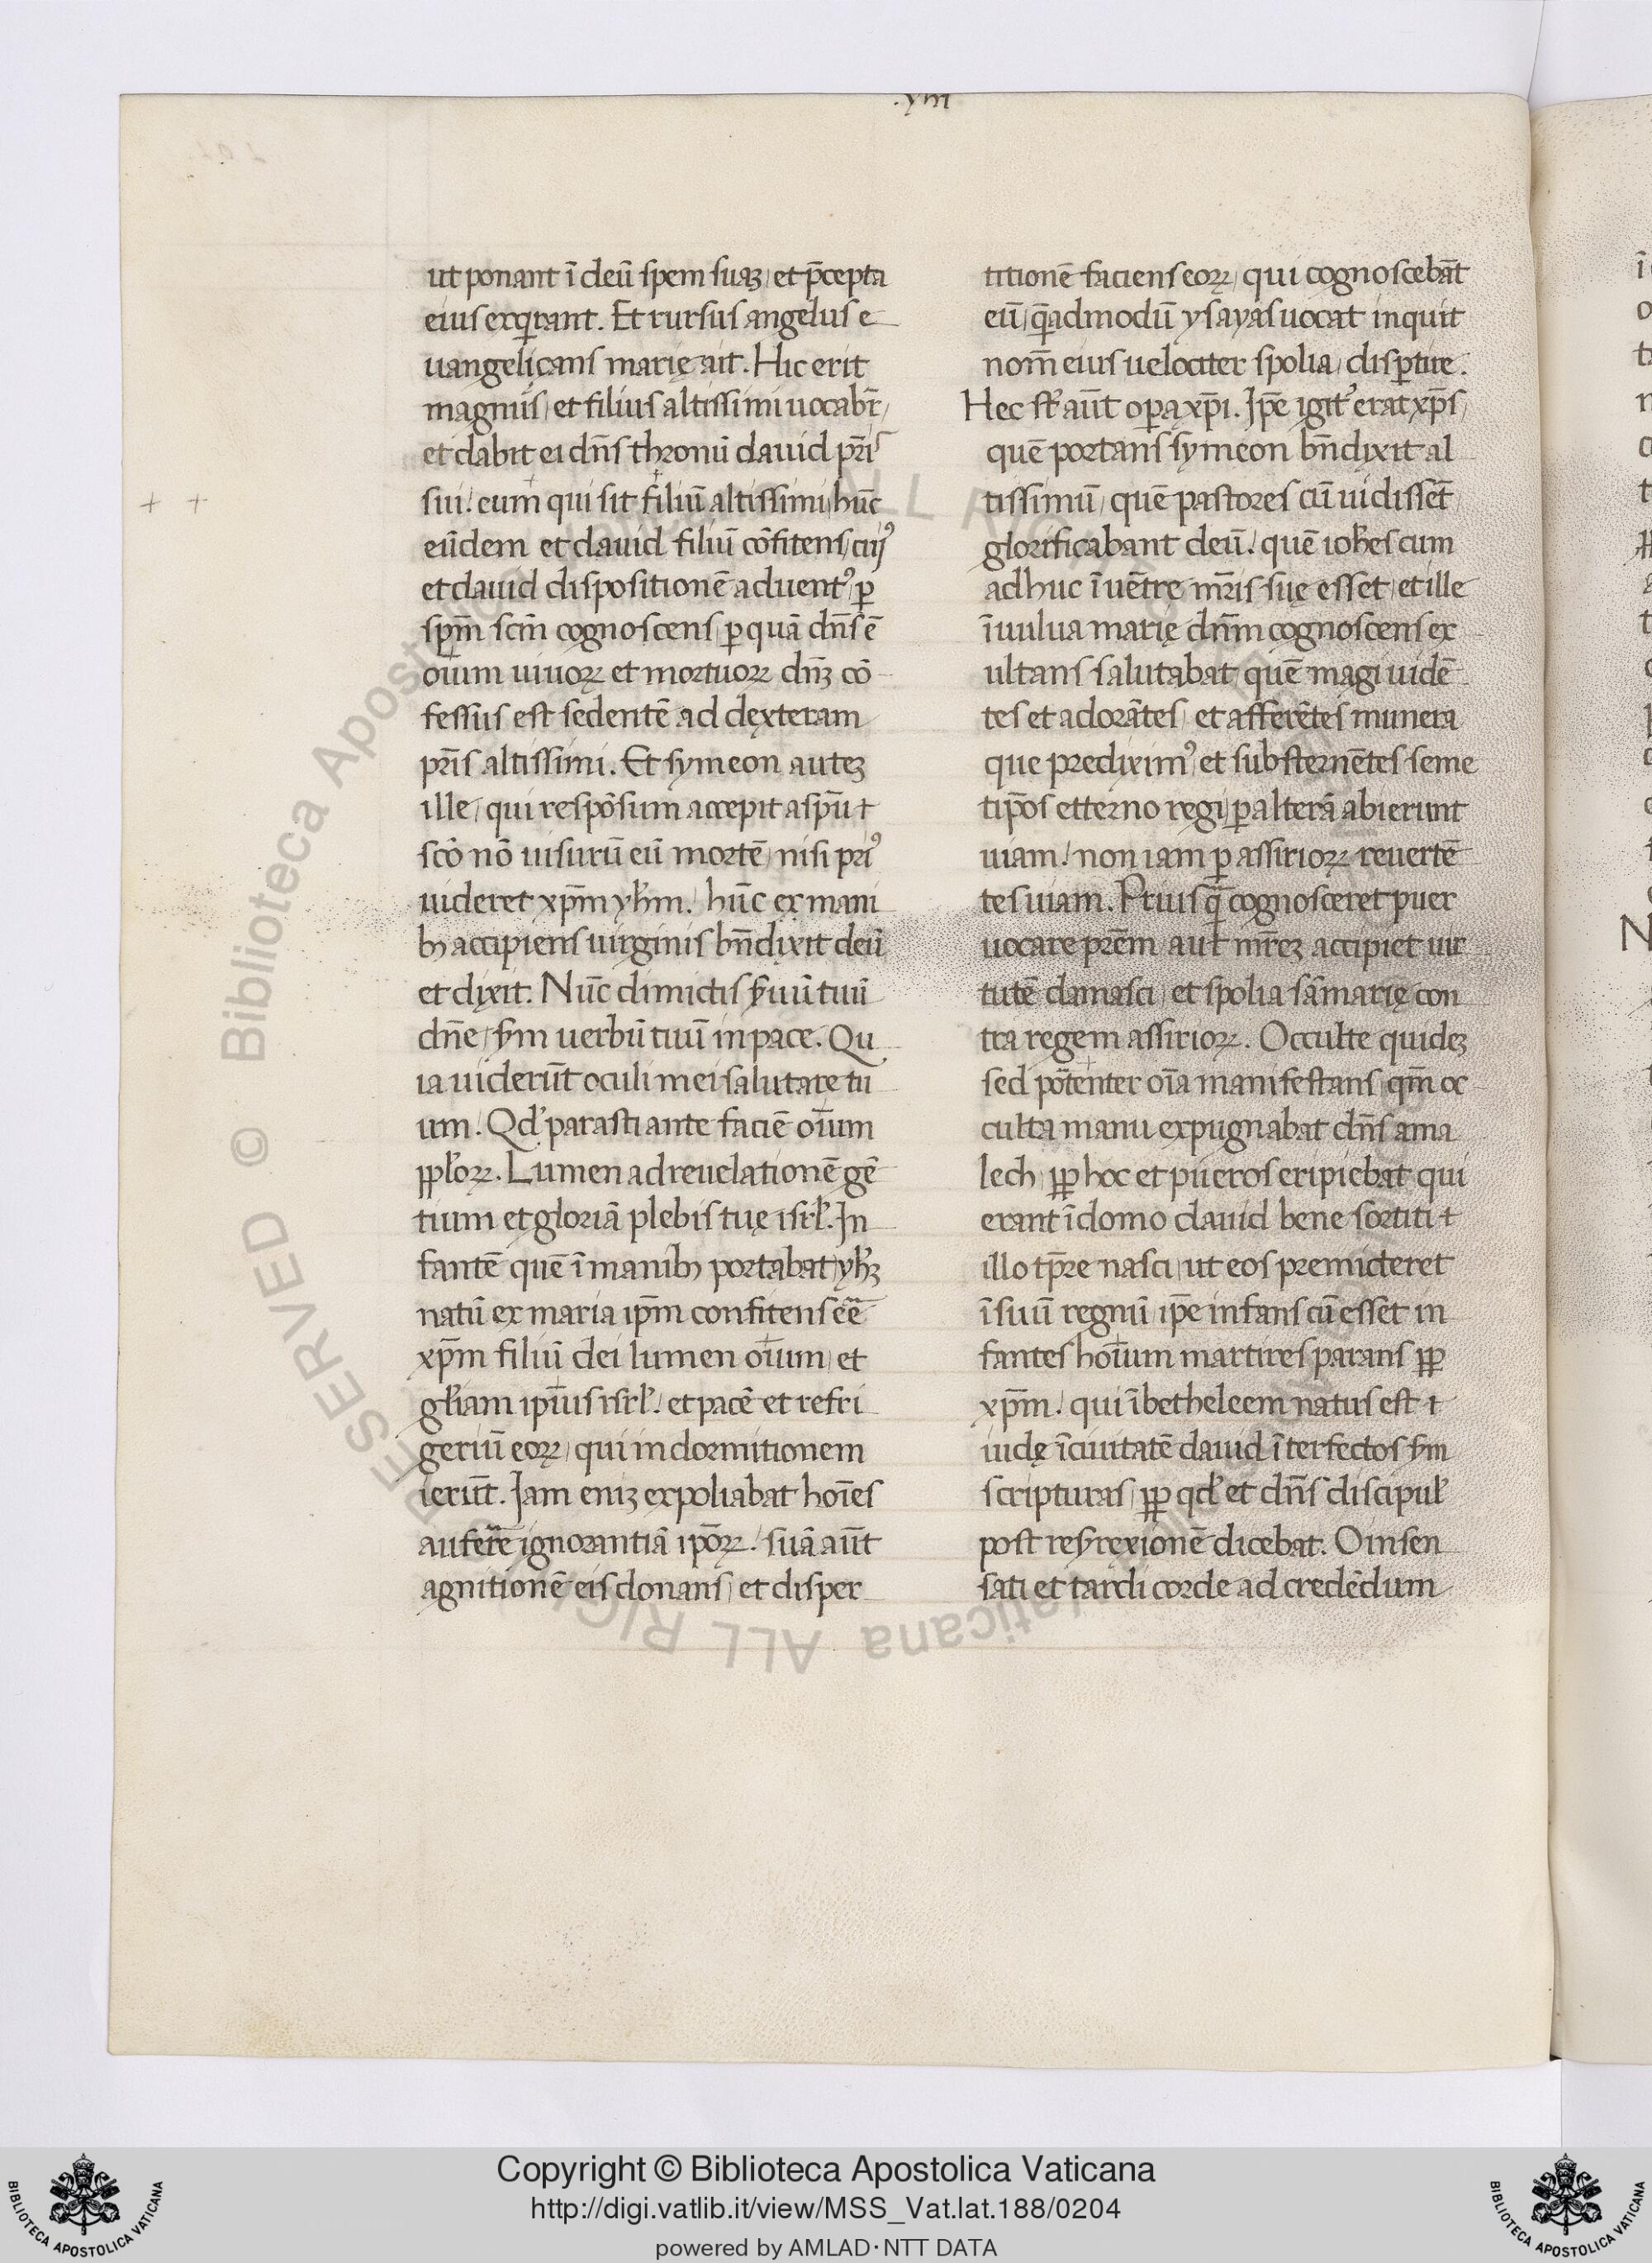 .xɱ
ut ponant ī deū spem suaꝫ, et p̄cepta
eius exqͥrant. Et rursus angelus e
uangeliçans marię ait. Hic erit
magnus, et filius altissimi uocabr̄,
et dabit ei dn̄s thronū dauid pr̄is
sui! eum qui sit filiū altissimi, hūc
eūdem et dauid filiū cōfitens, cuiꝰ
et dauid dispositionē aduentꝰ, ꝑ
sp̄m scm̄ cognoscens, ꝑ quā dn̄s ē
oīum uiuoꝝ et mortuoꝝ dn̄ꝫ cō
fessus est sedentē ad dexteram
pr̄is altissimi. Et symeon auteꝫ
ille, qui respōsum accepit a sp̄u t
scō nō uisurū eū mortē, nisi priꝰ
uideret xp̄m yħm. hūc ex mani
bꝫ accipiens uirginis bn̄dixit deū
et dixit. Nūc dimictis s̄uū tuū
dn̄e, s̄m uerbū tuū in pace. Qu
ia uiderūt oculi mei salutare tu
um. Qđ parasti ante faciē oīum
ppl̄oꝝ. Lumen ad reuelationē gē
tium et gloriā plebis tuę isrl̄. In
fantē quē ī manibꝫ portabat, yħꝫ
natū ex maria ip̄m confitens eē
xp̄m filiū dei lumen oīum, et
gl̄iam ipīus isrl̄! et pacē et refri
geriū eoꝝ, qui in dormitionem
ierūt. Iam eniꝫ expoliabat hoīes
auferr̄e ignorantiā ip̄oꝝ! suā aūt
agnitionē eis donans, et disper
titionē faciens eoꝝ, qui cognoscebāt
eū, qͣēadmodū ysayas uocat inquit
nom̄ eius uelociter spolia, disꝑtire.
Hec st̄ aūt oꝑa xp̄i. Ip̄e igit̄ erat xp̄s,
quē portans symeon bn̄dixit al
tissimū, quē pastores cū uidissēt
glorificabant deū! quē ioħes cum
adhuc ī uētre mr̄is suę esset, et ille
ī uulua marię dn̄m cognoscens ex
ultans salutabat, quē magi uidē
tes et adorātes, et afferētes munera
que prediximꝰ, et substernētes seme
tip̄os etterno regi, ꝑ alterā abierunt
uiam! non iam ꝑ assirioꝝ reuertē
tes uiam. Prius qͣ̄ cognosceret puer
uocare pr̄em aut mr̄eꝫ accipiet uir
tutē damasci, et spolia samarię con
tra regem assirioꝝ. Occulte quideꝫ
sed potenter oīa manifestans, qm̄ oc
culta manu expugnabat dn̄s ama
lech, ꝓp hoc et pueros eripiebat qui
erant ī domo dauid bene sortiti t
illo tp̄re nasci, ut eos premicteret
ī suū regnū, ip̄e infans cū esset in
fantes hoīum martires parans ꝓp
xp̄m! qui ī betheleem natus est t
iudę ī ciuitatē dauid īterfectos s̄m
scripturas, ꝓp qđ et dn̄s discipul̄
post resr̄rexionē dicebat. O insen
sati et tardi corde ad credēdum
Copyright © Biblioteca Apostolica Vaticana
http://digi.vatlib.it/view/MSS_Vat.lat.188/0204
powered by AMLAD·NTT DATA